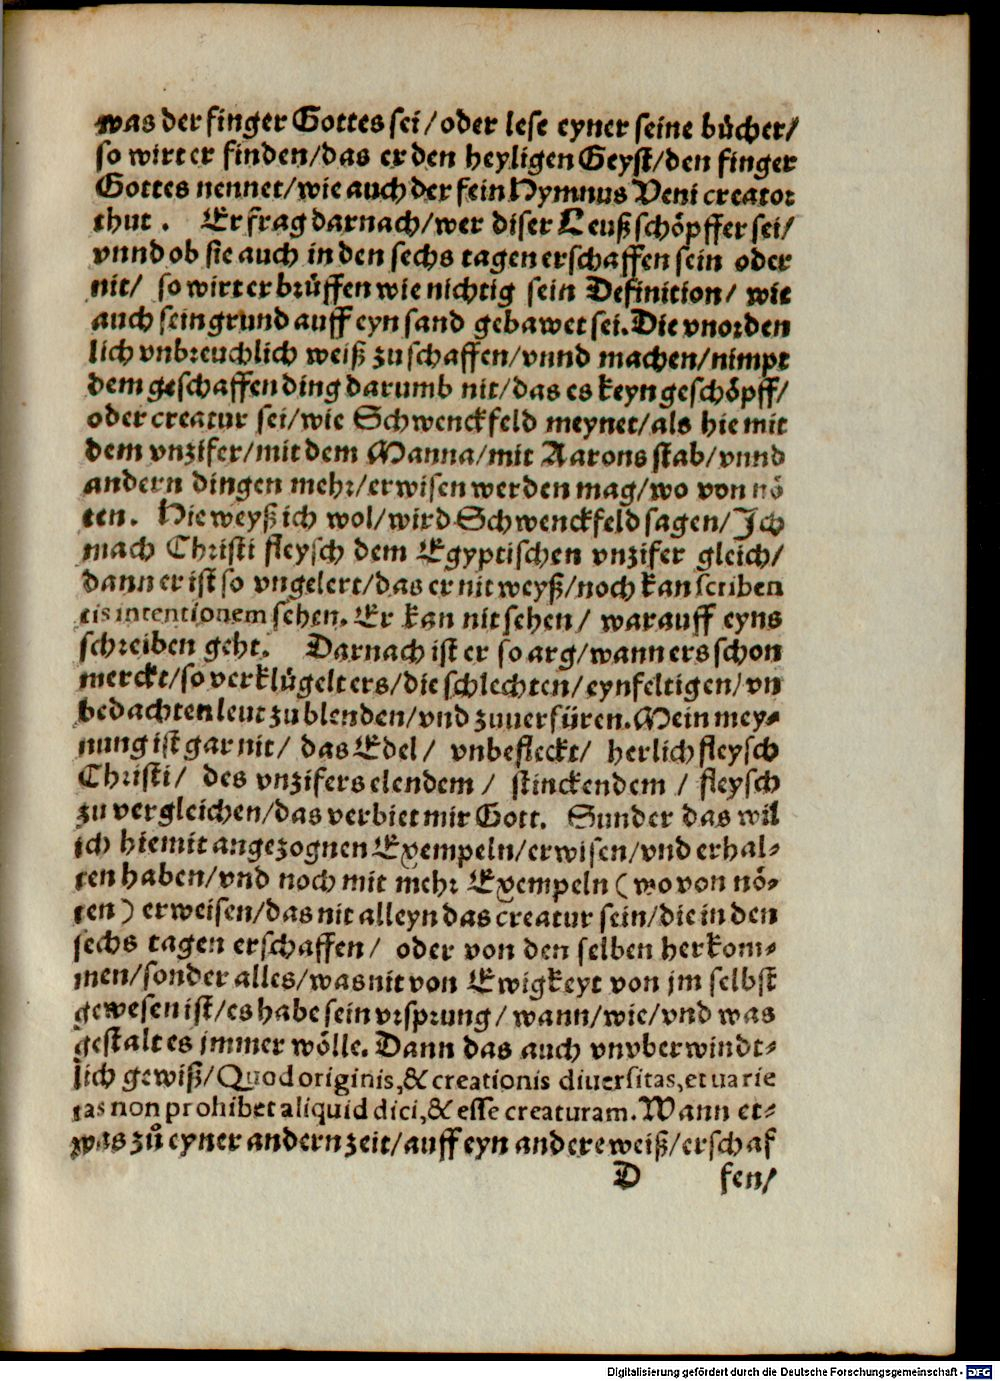 was der finger Gottes sei/oder lese eyner seine bůcher/
so wirt er finden/das er den heyligen Geyst/den finger
Gottes nennet/wie auch der fein Hymnus Veni creator
thut. Er frag darnach/wer diser Leuß schöpffer sei/
vnnd ob sie auch in den sechs tagen erschaffen sein oder
nit/ so wirt er brüffen wie nichtig sein Definition/ wie
auch sein grund auff eyn sand gebawet sei. Die vnorden
lich vnbreuchlich weiß zu schaffen/vnnd machen/nimpt
dem geschaffen ding darumb nit/das es keyn geschöpff/
oder creatur sei/wie Schwenckfeld meynet/als hie mit
dem vnzifer/mit dem Manna/mit Aarons stab/vnnd
andern dingen mehr/erwisen werden mag/wo von nö
ten. Hie weyß ich wol/wird Schwenckfeld sagen/Ich
mach Christi fleysch dem Egyptischen vnzifer gleich/
dann er ist so vngelert/das er nit weyß/noch kan scriben
tis intentionem sehen. Er kan nit sehen/ warauff eyns
schreiben geht. Darnach ist er so arg/wann ers schon
merckt/so verklügelt ers/die schlechten/eynfeltigen/vn
bedachten leut zu blenden/vnd zuuerfüren. Mein mey⸗
nung ist gar nit/ das Edel/ vnbefleckt/ herlich fleysch
Christi/ des vnzifers elendem/ stinckendem/ fleysch
zu vergleichen/das verbiet mir Gott. Sunder das wil
ich hiemit angezognen Exempeln/erwisen/vnd erhal⸗
ten haben/vnd noch mit mehr Exempeln (wo von nö⸗
ten) erweisen/das nit alleyn das creatur sein/die in den
sechs tagen erschaffen/ oder von den selben herkom⸗
men/sonder alles/was nit von Ewigkeyt von jm selbst
gewesen ist/es habe sein vrsprung/ wann/wie/vnd was
gestalt es jmmer wölle. Dann das auch vnvberwindt⸗
lich gewiß/Quod originis,& creationis diuersitas,et uarie
tas non prohibet aliquid dici,& esse creaturam. Wann et⸗
was zů eyner andern zeit/auff eyn andere weiß/erschaf
D fen/
Digitalisierung gefördert durch die Deutsche Forschungsgemeinschaft - DFG